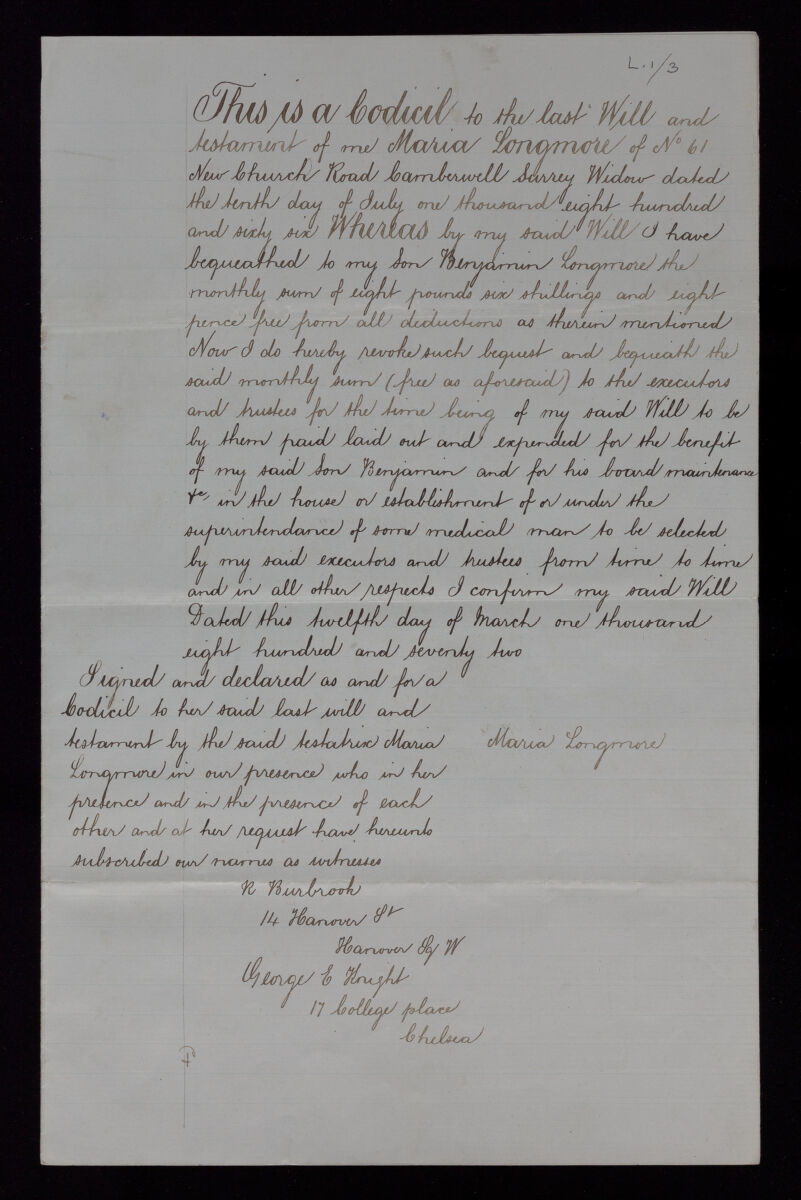 L.1/3
This is a Codicil to the last Will and
testament of me Maria Longmore of No 61
New Church Road Camberwell Surrey Widow dated
the tenth day of July one thousand eight hundred
and sixty six Whereas by my said Will I have
bequeathed to my Son Benjamin Longmore the
monthly sum of eight pounds six shillings and eight
pence free from all deductions as therein mentioned
Now I do hereby revoke such bequest and bequeath the
said monthly sum (free as aforesaid) to the executors
and trustees for the time being of my said Will to be
by them paid laid out and expended for the benefit
of my said Son Benjamin and for his board maintenance
&c, in the house or establishment of or under the
superintendance of some medical man to be selected
by my said executors and trustees from time to time
and in all other respects I confirm my said Will
Dated this twelfth day of March one thousand
eight hundred and seventy two
Signed and declared as and for a
Codicil to her said last will and
testament by the said testatrix Maria
Longmore in our presence who in her
presence and in the presence of each
other and at her request have hereunto
subscribed our names as witnesses
Maria Longmore
R Burbrook
14 Hanover St
Hanover Sq W
George E Knight
17 College place
Chelsea